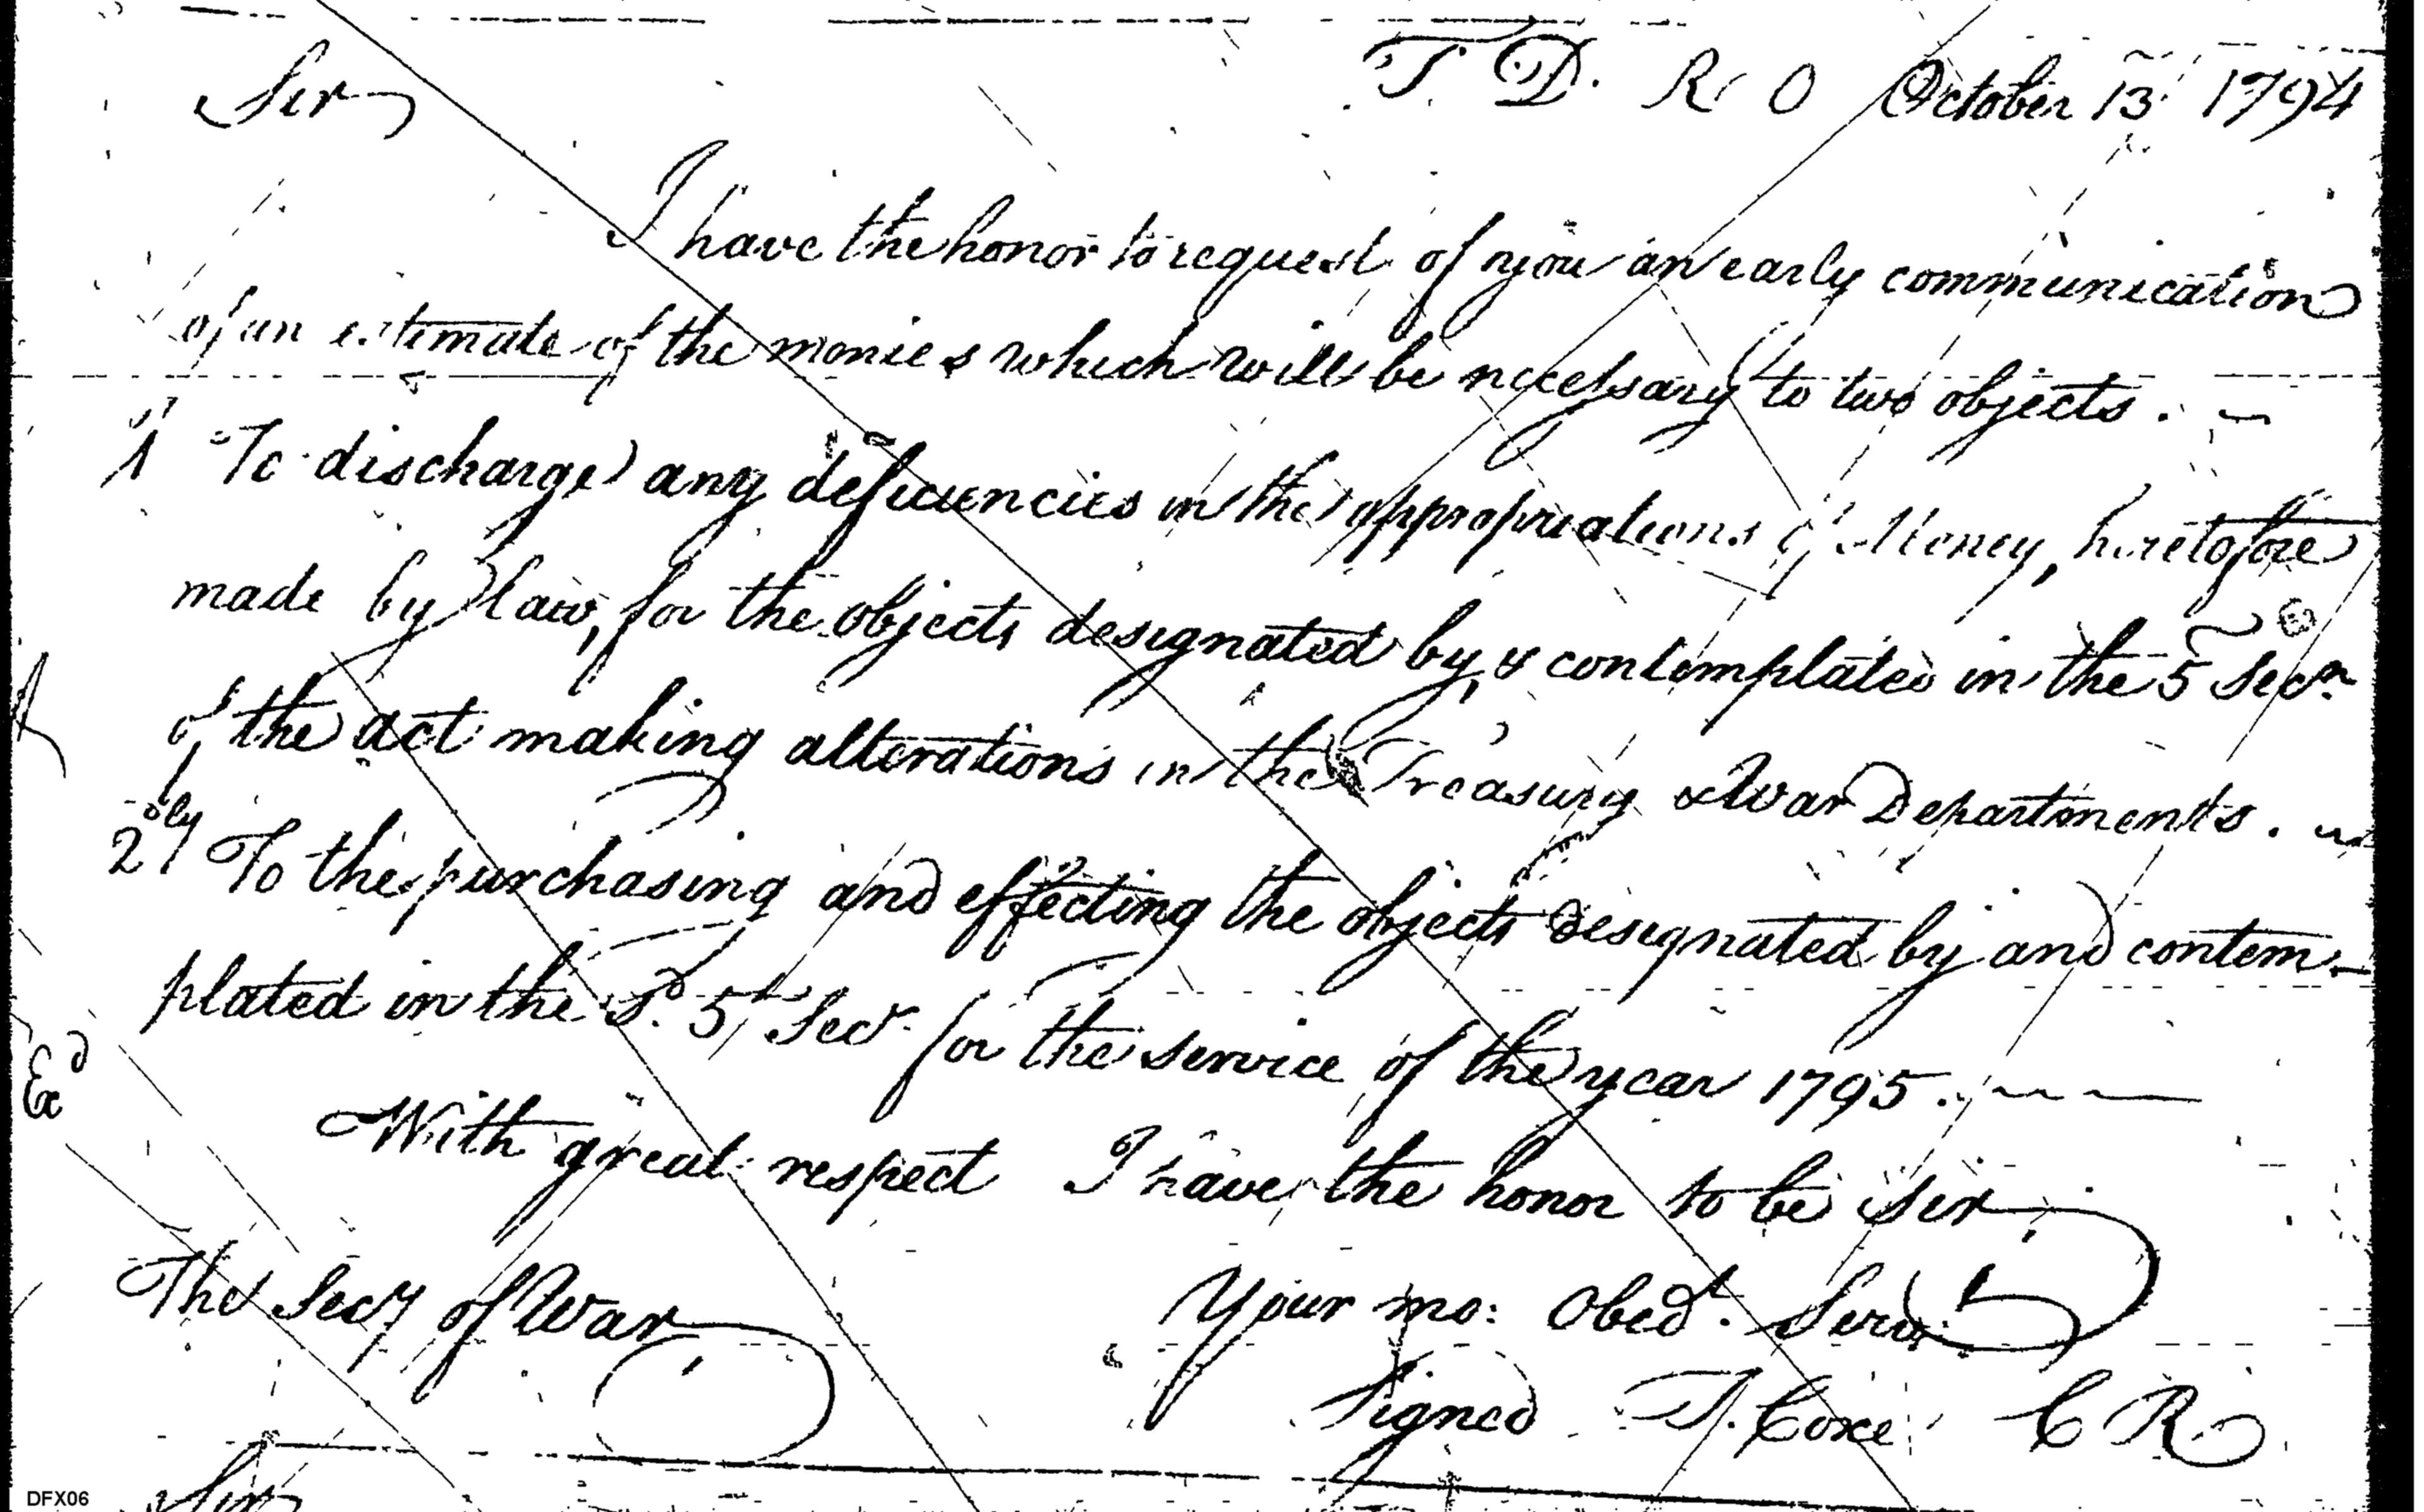 T. D. R. O October 13 1794
Sir
I have the honor to request of you an early communication
of an estimate of the monies which will be necessary to two objects. —
1 To discharge any deficiencies in the appropriations of Money, heretofore
made by law, for the objects designated by, & contemplated in the 5 Secn
of the act making alterations in the Treasury & War Departments.
2dly To the purchasing and effecting the objects designated by and contem-
plated in the sd. 5th Secn. for the service of the year 1795. —
Exd
With great respect I have the honor to be Sir
The Secy of War
Your mo: Obedt. Servt
Signed T. Coxe C R
Sir
DFX06